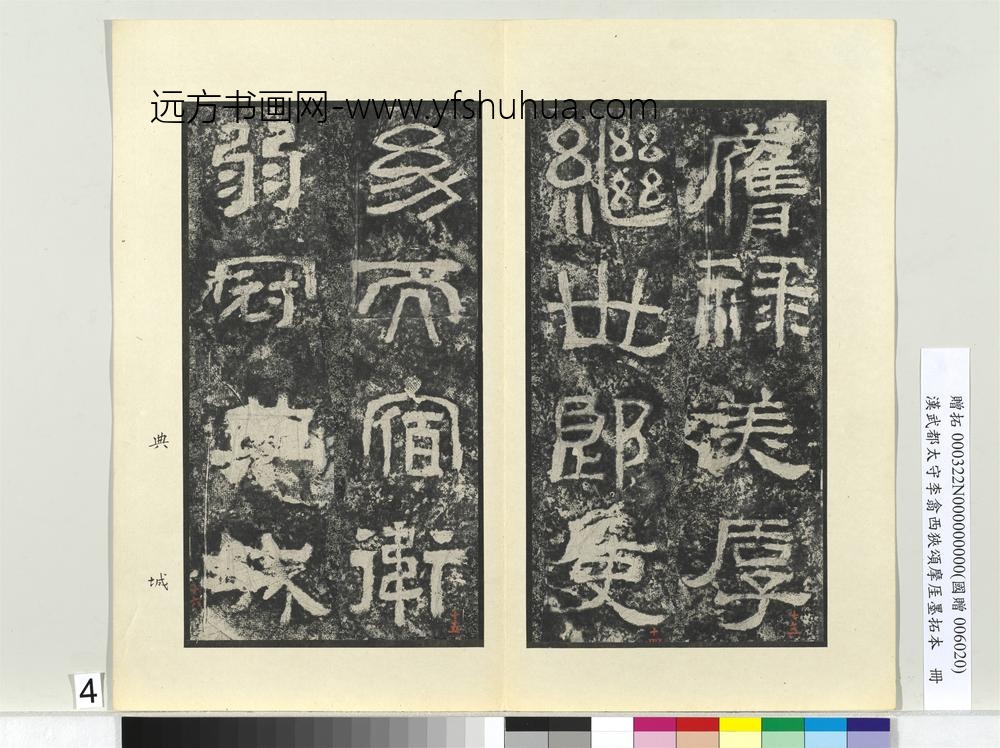 远方书画网-www.yfshuhua.com
膺禄美厚
十三
繼世郎吏
十四
幼而宿衛
十五
弱冠典城
十六
典
城
贈拓 000322N000000000(國贈 006020)
漢武都太守李翕西狹頌摩厓墨拓本 冊
4